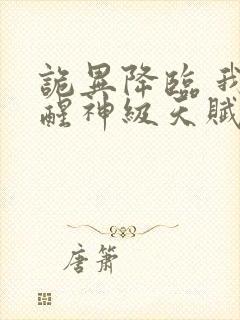 詭異降臨 我
醒神級天賦
唐簫